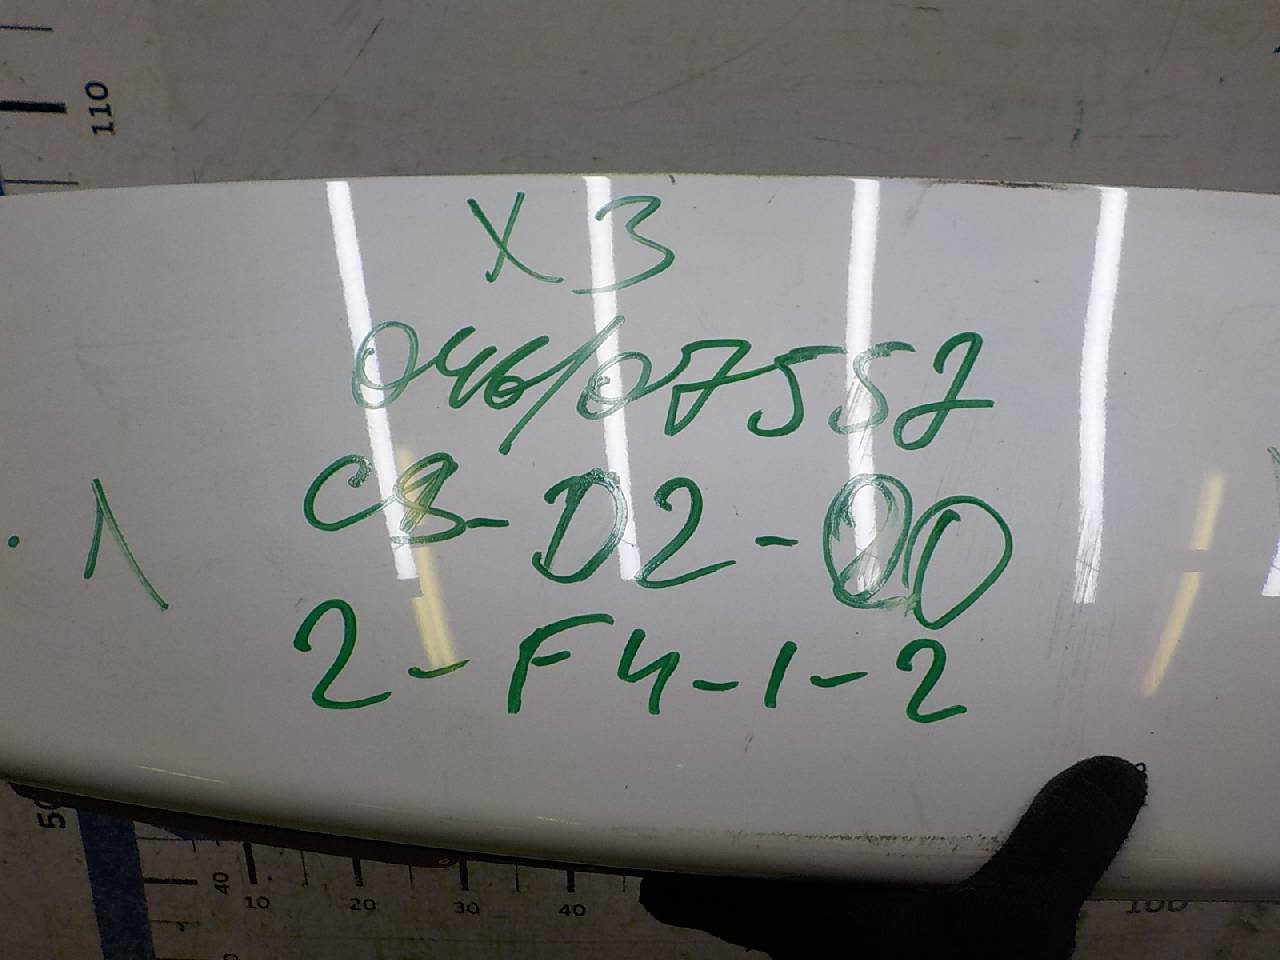 110
X3
046/07552
C8-D2-00
1
2-F4-1-2
50
40
10 20 30 40
100